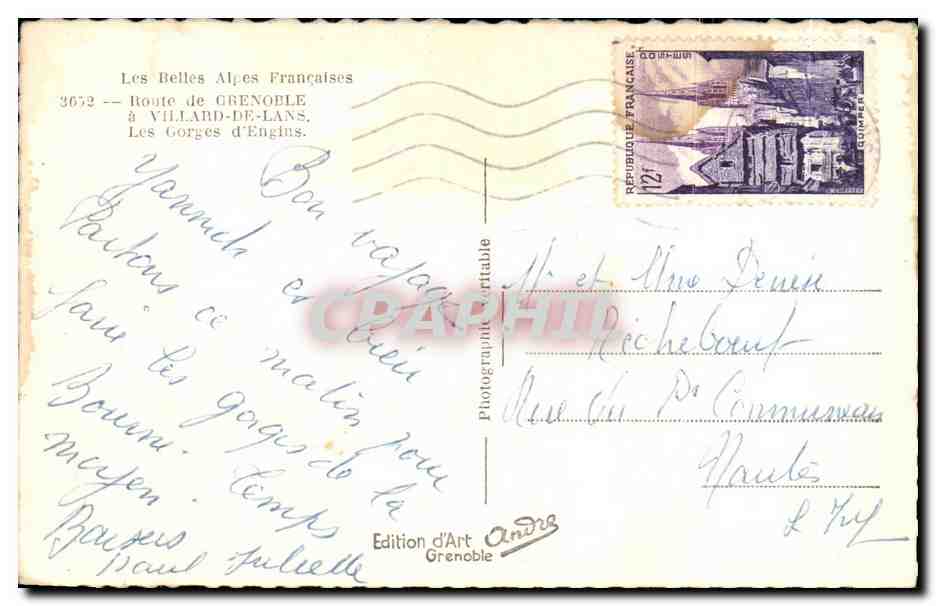 Les Belles Alpes Françaises
3652 -- Route de GRENOBLE
à VILLARD-DE-LANS.
Les Gorges d'Engins.
Bon voyage
Yannick est bien
Partons ce matin pour
faire les gorges de la
Bourne. Temps
moyen.
Baisers
Paul Juliette
Photographie Véritable
Edition d'Art André
Grenoble
REPUBLIQUE FRANÇAISE
POSTES
12f
QUIMPER
M. et Mme Denieu
Richebœuf
Rue du Pt Communeau
Nantes
L. Inf
CPAPHIL